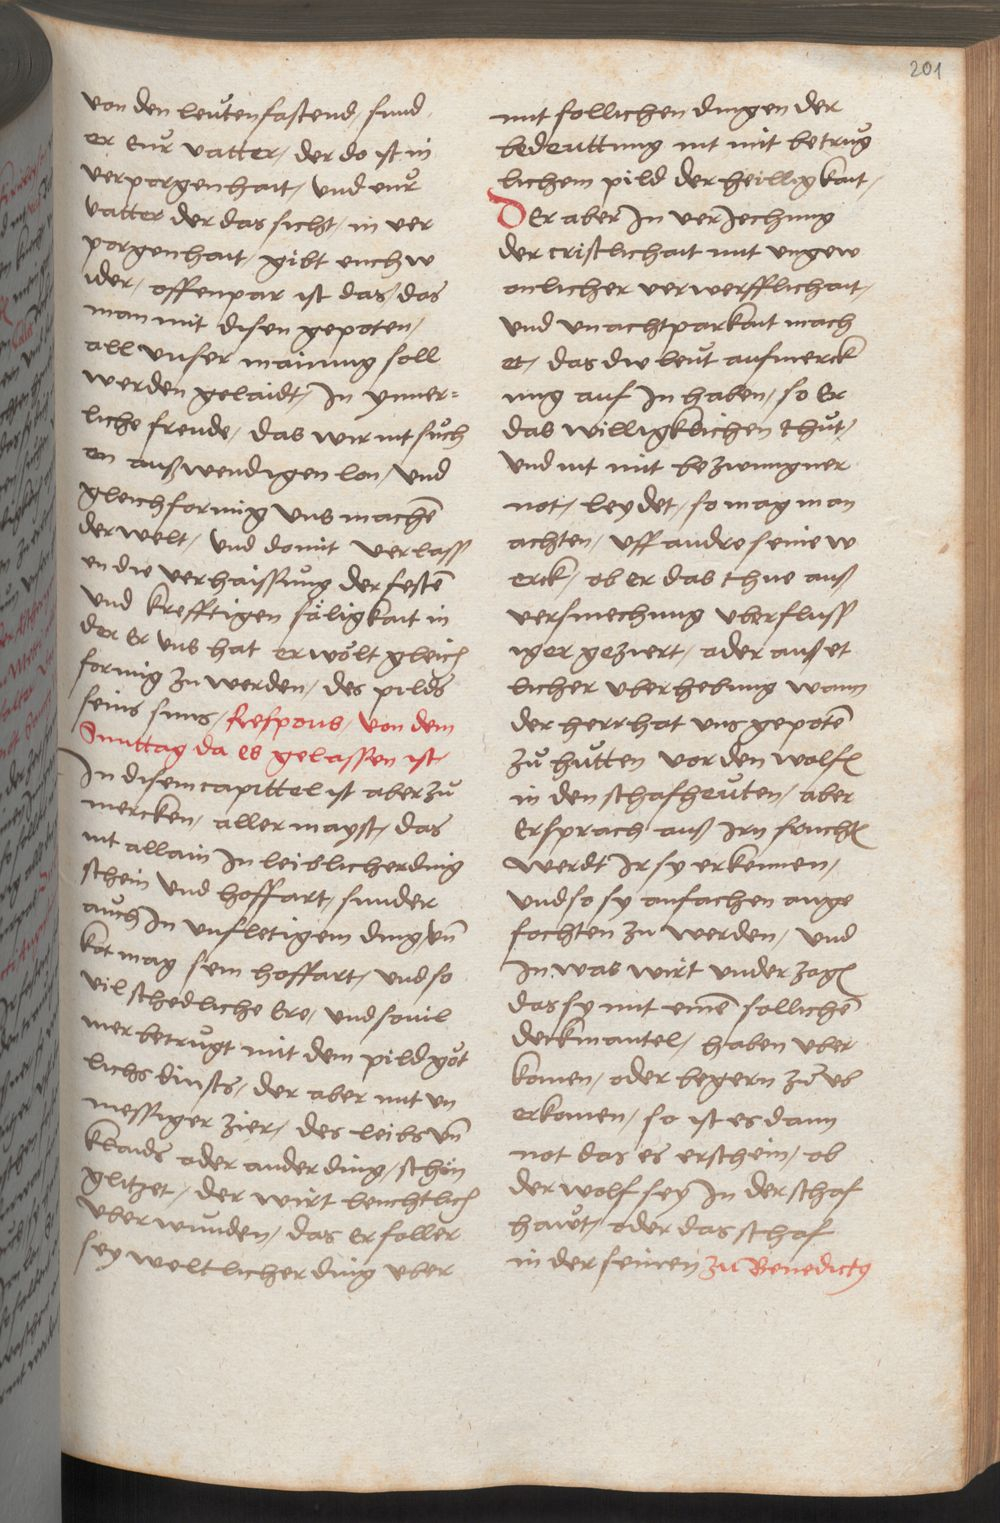 201
von den leuten fastend / sund
er eur vatter / der do ist in
verporgenhait / vnd eur
vatter der das sicht / in ver
porgenhait / gibt euch w
ider / offenpar ist das das
man mit disen gepoten /
all vnser mainung soll
werden gelaidt / In ynner=
liche freude / das wir nit such
en außwendigen lon / vnd
gleichformig vns machē
der welt / vnd domit verlass
en die verhaissūg der festē
vnd krefftigen säligkait in
der Er vns hat erwölt gleich
formig zu werden / des pilds
seins suns / Respons / von dem
Sunttag da es gelassen ist /
In disem capittel ist aber zu
mercken / aller mayst / das
nit allain In leiblicher ding
schein vnd hoffart / sunder
auch In vnfletigem ding vn̄
kot mag sein hoffart / vnd so
vil schedliche Ere / vnd souil
mer betrugt mit dem pild göt
lichs dinsts / der aber mit vn
messiger zier / des leibs vn̄
klaids oder ander ding / schön
glitzet / der wirt leuchtlich
vberwunden / das Er foller
sey weltlicher ding vber
mit sollichen dingen der
bedeuttung nit mit betrug
lichem pild der heilligkait /
Der aber In verJechung
der cristlichait mit vngew
onlicher verwerfflichait /
vnd vnachtparkait mach
et / das die leut aufmerck
ung auf In haben / so Er
das willigklichen thut /
vnd nit mit bezwungner
not / leydet / so mag man
achten / vff andre seine w
erck / ob er das thue auß
versmechung vberfluss
iger geziert / oder auß et
licher vberhebung wann
der herr hat vns gepotē
zu hutten vor den wolfen
in den schafheuten / aber
Er sprach auß irn fruchten
werdt Ir sy erkennen /
vnd so sy anfachen ange
fochten zu werden / vnd
In was wirt vnderzogen
das sy mit einē sollichē
deckmantel / haben vber
komen / oder begern zu vb
erkomen / so ist es dann
not das es erschein / ob
der wolf sey In der schaf
haut / oder das schaf
in der seinen zu Benedictus